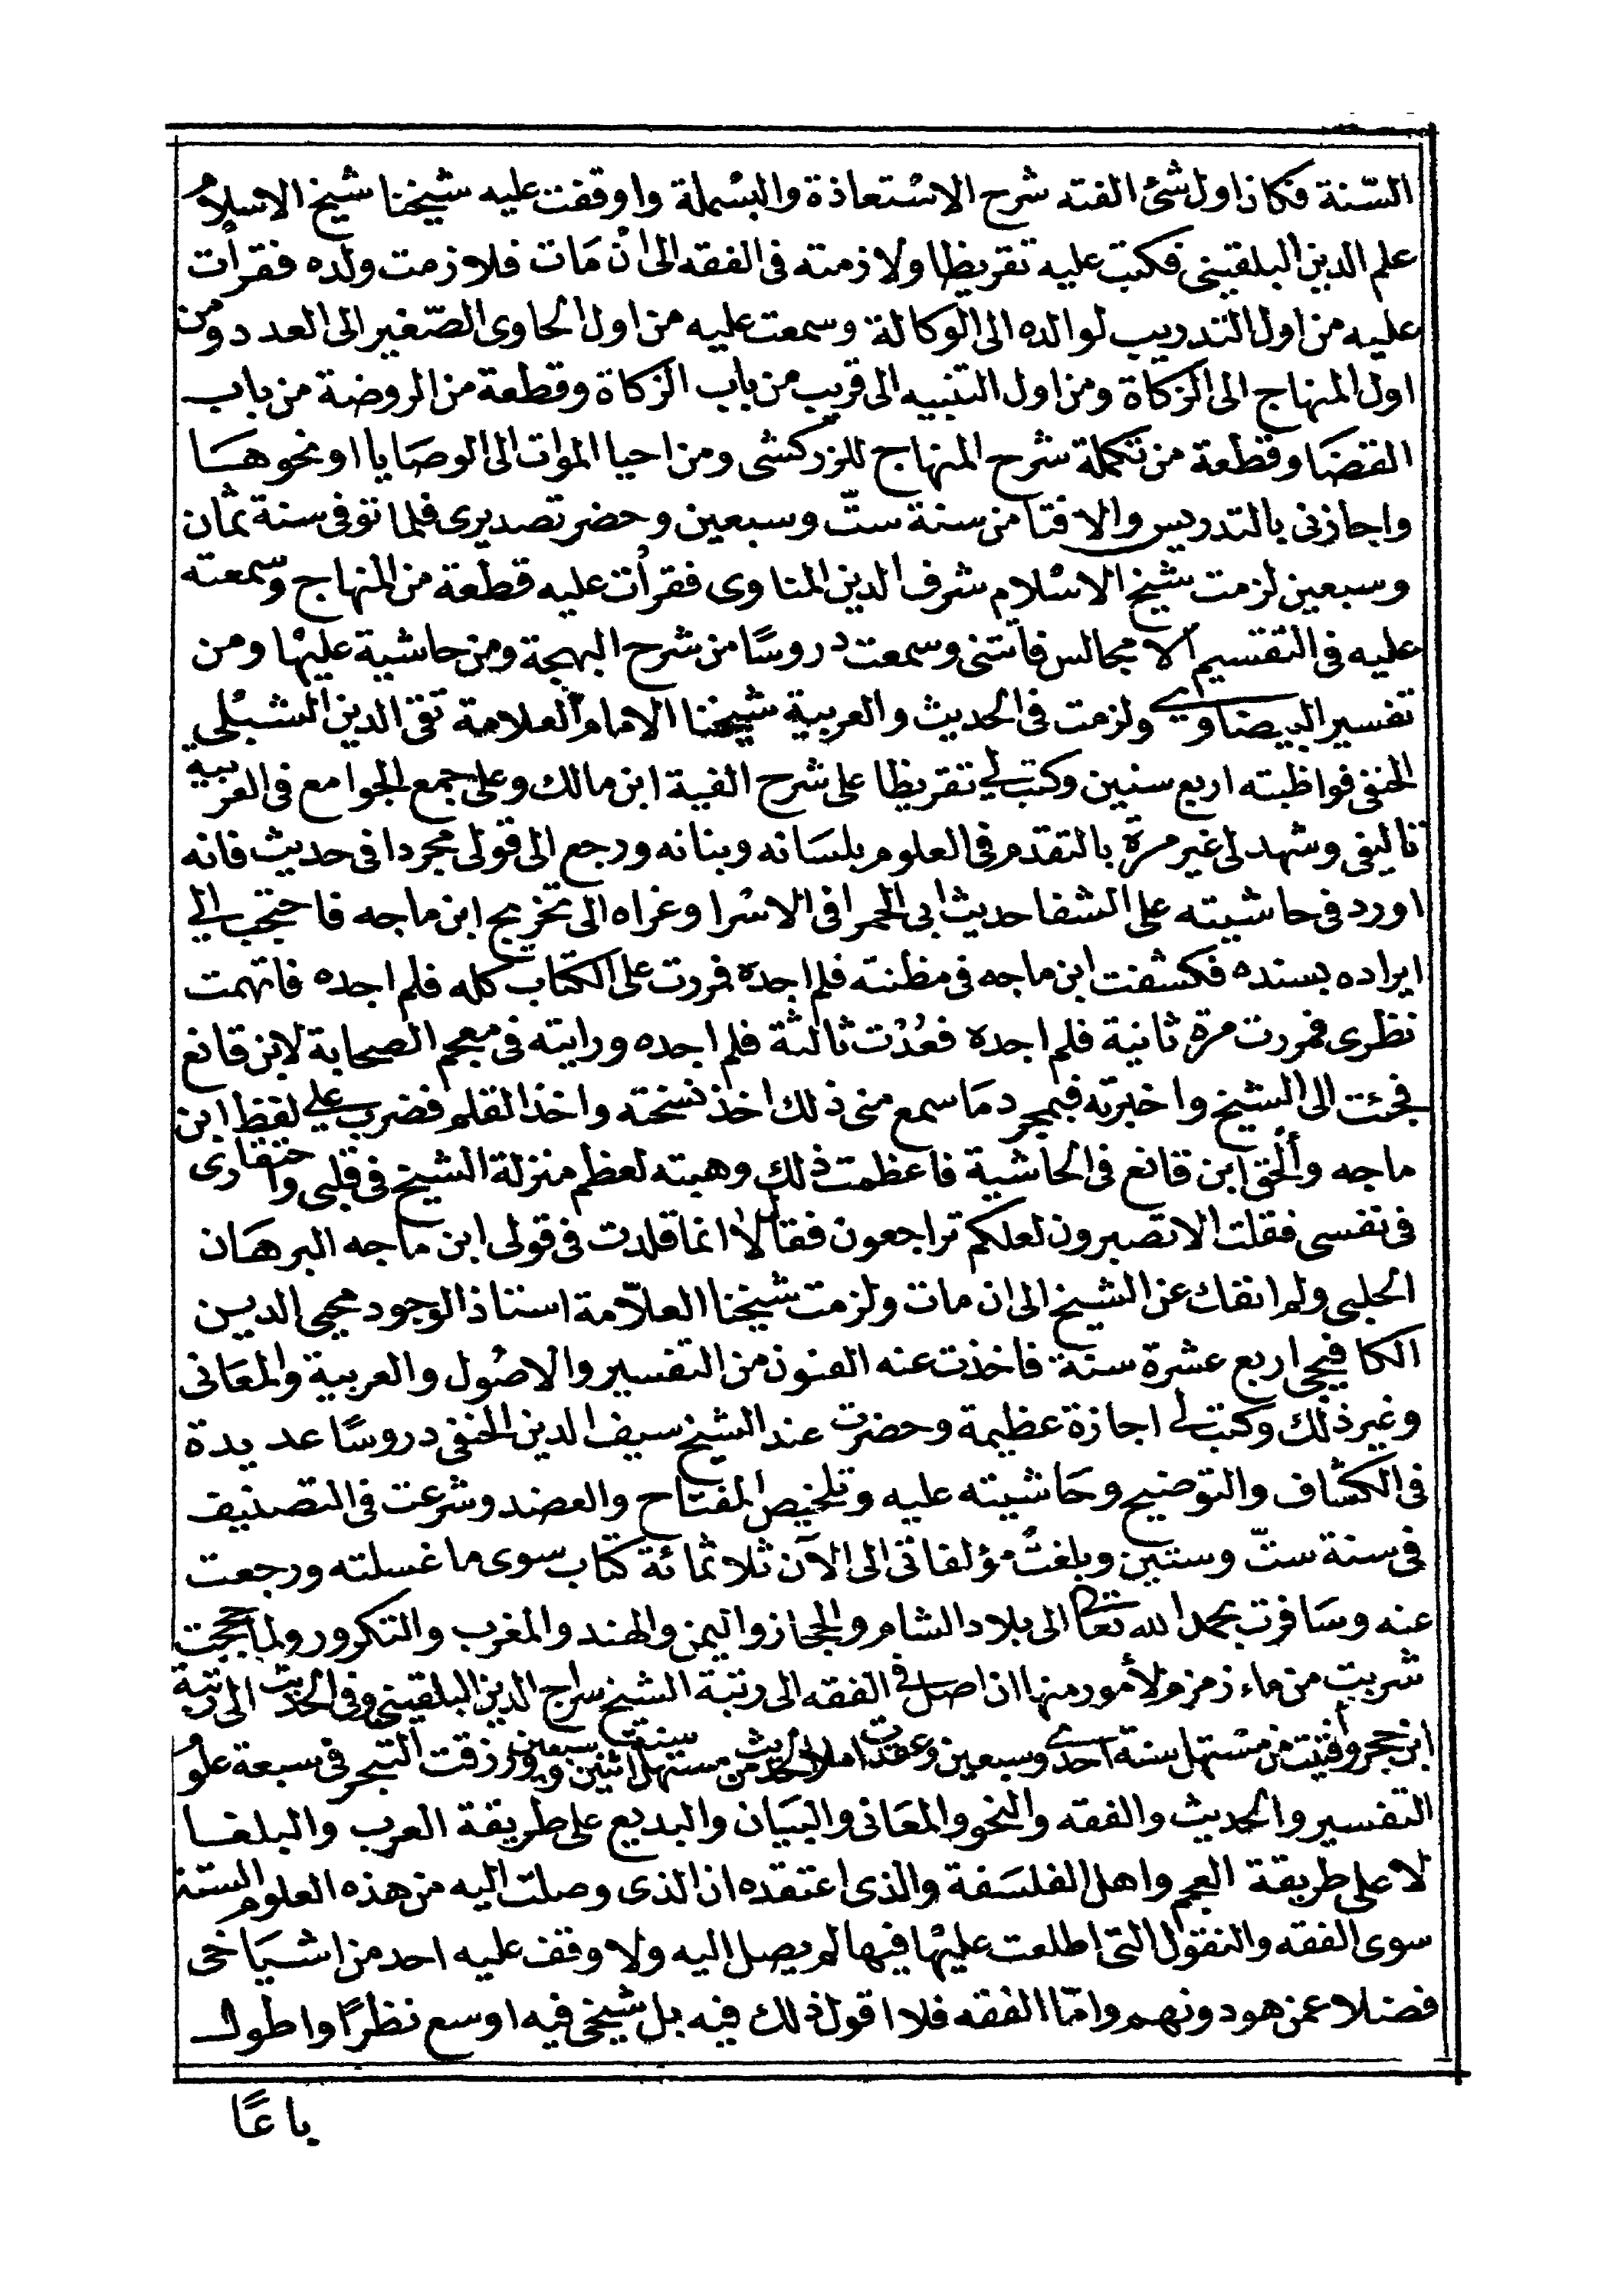 السّنة فكان اول شئ الفته شرح الاسْتعاذة والبسْملة واوقفت عليه شيخنا شيخ الاسلام
علم الدين البلقينى فكتب عليه تقريظا ولازمته فى الفقه الى انْ مَات فلازمت ولده فقرأت
عليه من اول التدريب لوالده الى الوكالة وسمعت عليه من اول الحاوى الصّغير الى العدد ومن
اول المنهاج الى الزكاة ومن اول التنبيه الى قريب من باب الزكاة وقطعة من الروضة من باب
القضَا وقطعة من تكملة شرح المنهاج للزركشى ومن احيا الموات الى الوصَايا او نحوهسَا
واجازنى بالتدريس والافتا من سنة ستّ وسبعين وحضر تصديرى فلما توفى سنة ثمان
وسبعين لزمت شيخ الاسْلام شرف الدين المناوى فقرأت عليه قطعة من المنهاج وسمعته
عليه فى التقسيم الا مجالس فاتتنى وسمعت دروسًا من شرح البهجة ومن حاشية عليْها ومن
تفسير البيضاوى ولزمت فى الحديث والعربية شيخنا الامام العلامة تقى الدين الشبْلى
الحنفى فواظبته اربع سنين وكتب لى تقريظا على شرح الفية ابن مالك وعلى جمع الجوامع فى العربية
تاليفى وشهد لى غير مرّة بالتقدم فى العلوم بلسَانه وبنانه ورجع الى قولى مجردا فى حديث فانه
اورد فى حاشيته على الشفا حديث ابى الحمرا فى الاسْرا وعزاه الى تخريج ابن ماجه فاحتجب الى
ايراده بسنده فكشفت ابن ماجه فى مظنته فلم اجده فمررت على الكتاب كله فلم اجده فاتهمت
نظرى فمررت مرة ثانية فلم اجده فعُدْت ثالثة فلم اجده ورايته فى معجم الصحابة لابن قانع
فجئت الى الشيخ واخبرته فبمجرد مَا سمع منى ذلك اخذ نسخته واخذ القلم فضرب على لفظ ابن
ماجه وألْحق ابن قانع فى الحاشية فاعظمت ذلك وهبته لعظم منزلة الشيخ فى قلبى واحتقارى
فى نفسى فقلت الا تصبرون لعلكم تراجعون فقال لا انما قلدت فى قولى ابن ماجه البرهَان
الحلبى ولم انفك عن الشيخ الى ان مات ولزمت شيخنا العلّامة استاذ الوجود محيى الديسن
الكافيجى اربع عشرة سنة فاخذت عنه الفنون من التفسير والاصُول والعربية والمعَانى
وغير ذلك وكتب لى اجازة عظيمة وحضرت عند الشيخ سيف الدين الحنفى دروسًا عديدة
فى الكشاف والتوضيح وحَاشيته عليه وتلخيص المفتاح والعضد وشرعت فى التصنيف
فى سنة ستّ وستين وبلغتْ مؤلفاتى الى الآن ثلاثمائة كتاب سوى ما غسلته ورجعت
عنه وسَافرت بحمد الله تعالى الى بلاد الشام والحجاز واليمن والهند والمغرب والتكرور ولما حججت
شربت من ماء زمزم لأمور منها ان اصل فى الفقه الى رتبة الشيخ سراج الدين البلقينى وفى الحديث الى رتبة
ابن حجر وأفتيت من مسْتهل سنة احدى وسبعين وعقدت املا الحديث من مستهل سنة اثنين وسبعين ورزقت التبحر فى سبعة علوم
التفسير والحديث والفقه والنحو والمعَانى والبيَان والبديع على طريقة العرب والبلغسا
لا على طريقة العجم واهل الفلسَفة والذى اعتقده ان الذى وصلت اليه من هذه العلوم الستة
سوى الفقه والنقول التى اطلعت عليْها فيها لم يصل اليه ولا وقف عليه احد من اشيَاخى
فضلا عمن هو دونهم وامّا الفقه فلا اقول ذلك فيه بل شيخى فيه اوسع نظرًا واطول
باعًا